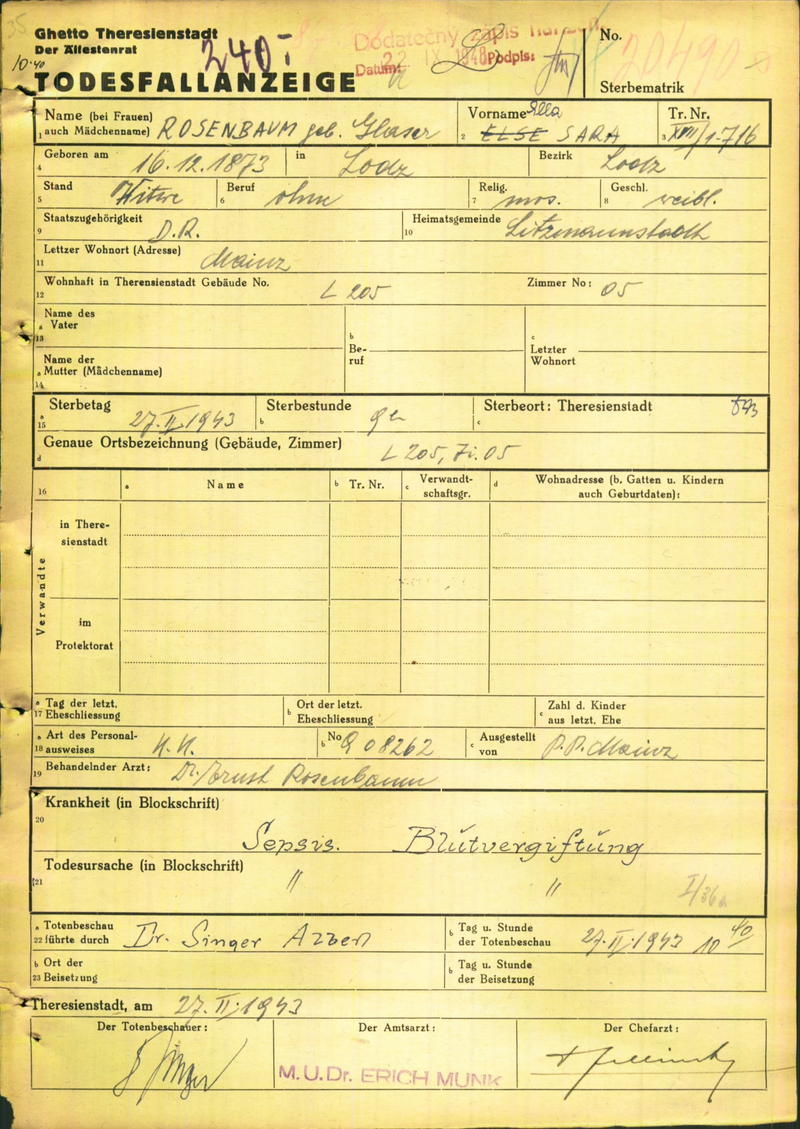 Ghetto Theresienstadt
Der Ältestenrat
10.40
240.-
TODESFALLANZEIGE
Dodatečný zápis
Datum: 22 IX. 1948 Podpis:
No.
20490
Sterbematrik
Name (bei Frauen)
1 auch Mädchenname) ROSENBAUM geb. Glaser
Vorname Ella
2 ELSE SARA
Tr. Nr.
3 XVIII/1-716
4 Geboren am 16.12.1873 in Lodz Bezirk Lodz
5 Stand Witwe 6 Beruf ohne 7 Relig. mos. 8 Geschl. weibl.
9 Staatszugehörigkeit D.R. 10 Heimatsgemeinde Litzmannstadt
11 Lettzer Wohnort (Adresse) Mainz
12 Wohnhaft in Therensienstadt Gebäude No. L 205 Zimmer No: 05
Name des
a Vater
13
Name der
a Mutter (Mädchenname)
14
b
Be-
ruf
c
Letzter
Wohnort
a 15 Sterbetag 27.II.1943 b Sterbestunde 9h c Sterbeort: Theresienstadt
d Genaue Ortsbezeichnung (Gebäude, Zimmer) L 205, Zi. 05
16 a Name b Tr. Nr. c Verwandt-
schaftsgr. d Wohnadresse (b. Gatten u. Kindern
auch Geburtdaten):
Verwandte
in There-
sienstadt
im
Protektorat
a Tag der letzt.
17 Eheschliessung
b Ort der letzt.
Eheschliessung
c Zahl d. Kinder
aus letzt. Ehe
a Art des Personal-
18 ausweises K.K.
b No Q 08262
c Ausgestellt
von P.P. Mainz
19 Behandelnder Arzt: Dr. Ernst Rosenbaum
Krankheit (in Blockschrift)
20
Sepsis. Blutvergiftung
Todesursache (in Blockschrift)
21 " "
I/36a
a Totenbeschau
22 führte durch Dr. Singer
b Tag u. Stunde
der Totenbeschau 27.II.1943 10 40
b Ort der
23 Beisetzung
b Tag u. Stunde
der Beisetzung
Theresienstadt, am 27.II.1943
Der Totenbeschauer:
Der Amtsarzt:
Der Chefarzt:
M.U.Dr. ERICH MUNK